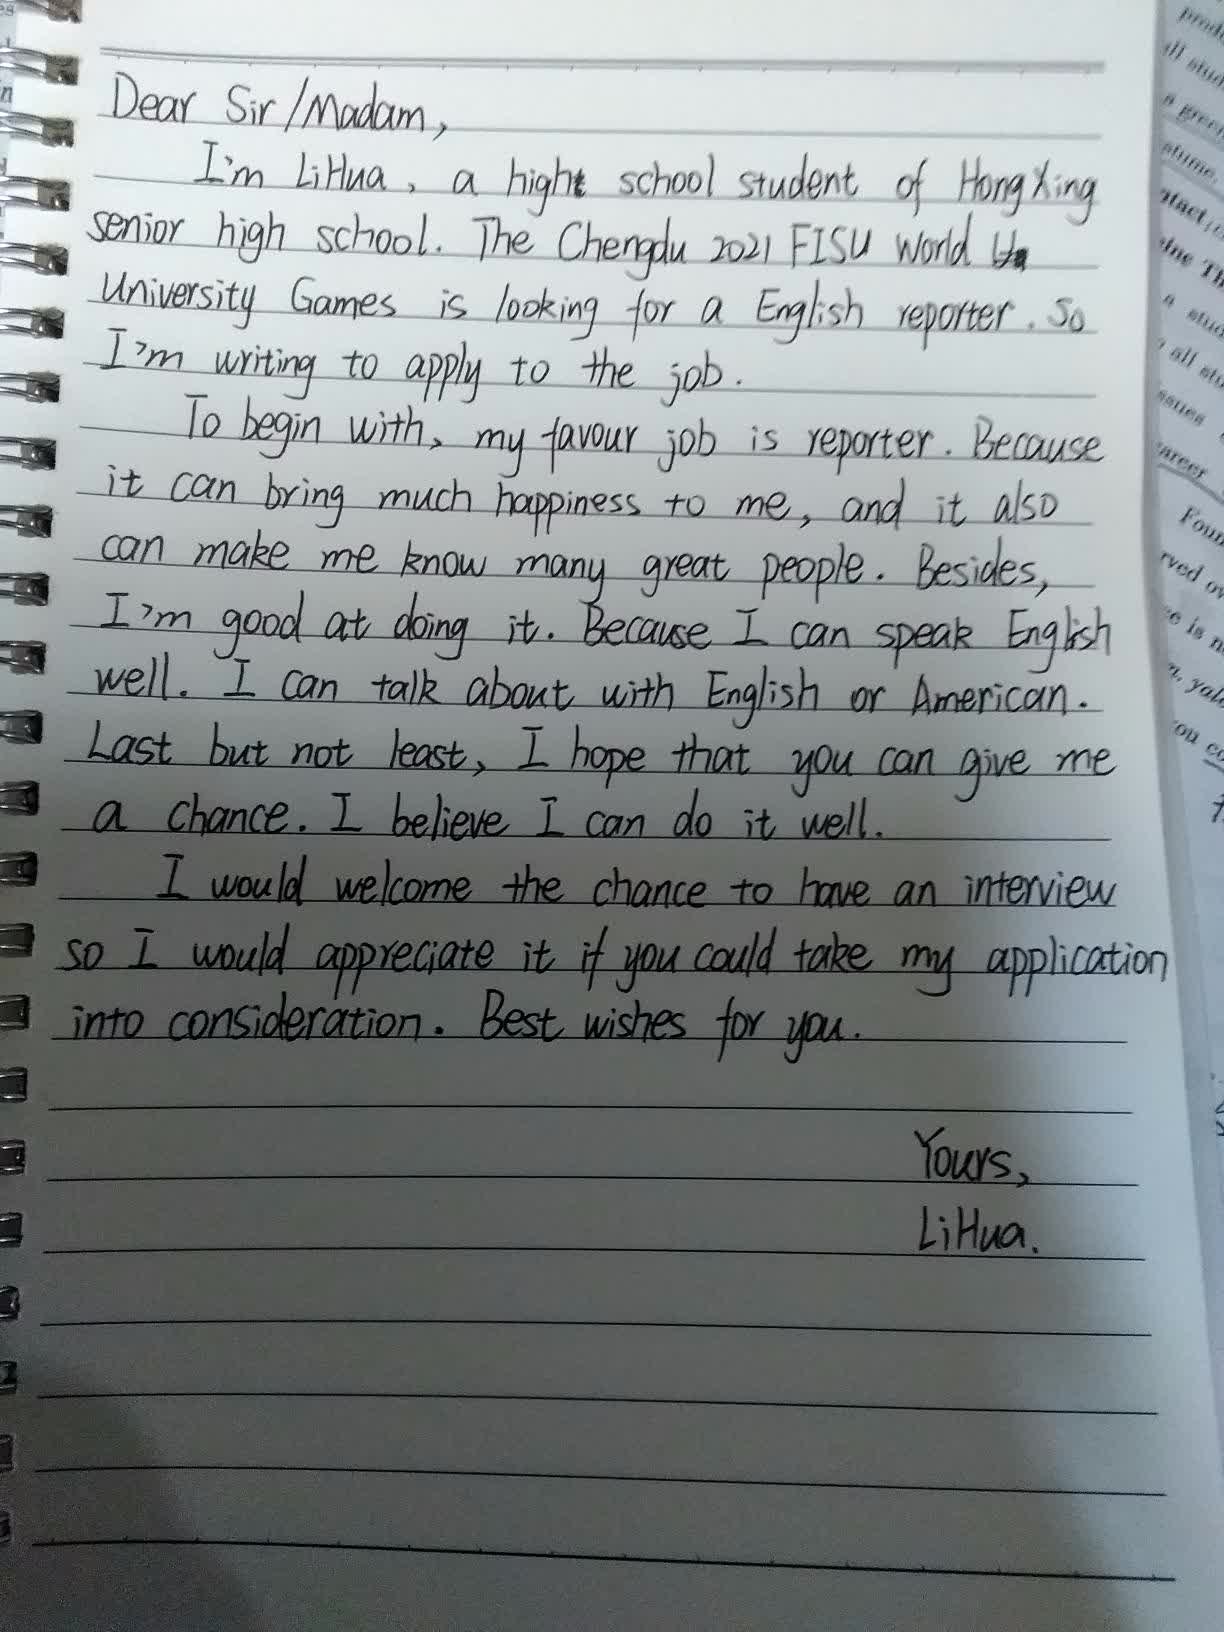 Dear Sir/Madam,
I'm LiHua, a hight school student of HongXing
senior high school. The Chengdu 2021 FISU World
University Games is looking for a English reporter. So
I'm writing to apply to the job.
To begin with, my favour job is reporter. Because
it can bring much happiness to me, and it also
can make me know many great people. Besides,
I'm good at doing it. Because I can speak English
well. I can talk about with English or American.
Last but not least, I hope that you can give me
a chance. I believe I can do it well.
I would welcome the chance to have an interview
so I would appreciate it if you could take my application
into consideration. Best wishes for you.
Yours,
LiHua.
produ
all stud
a green
a stud
all stu
issues
career
Foun
rved ov